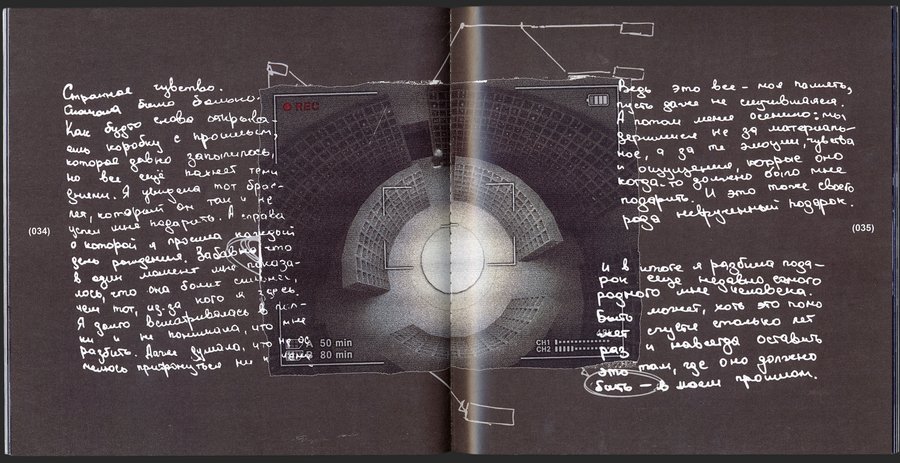 Странное чувство.
Сначала было больно.
Как будто снова открыва-
ешь коробку с прошлым,
которая давно запылилась,
но все ещё пахнет теми
днями. Я увидела тот брас-
лет, который он так и не
успел мне подарить. А справа
о которой я просила каждый
день рождения. Забавно, что
в один момент мне показа-
лось, что она болит сильнее,
чем тот, из-за кого я здесь.
Я долго всматривалась в
ки и не понимала, что мне
разбить. Даже думала, что не
притронуться ни к
(034)
REC
A 50 min
B 80 min
CH1
CH2
Ведь это все – моя память,
пусть даже не случившаяся.
А потом меня осенило: мы
держимся не за материаль-
ное, а за те эмоции, чувства
и ощущения, которые оно
когда-то должно было мне
подарить. И это тоже своего
рода невручённый подарок.
(035)
И в итоге я разбила пода-
рок еще недавно самого
родного мне человека.
Быть может, хоть это помо
жет спустя столько лет
раз и навсегда оставить
это там, где оно должно
быть – в моем прошлом.